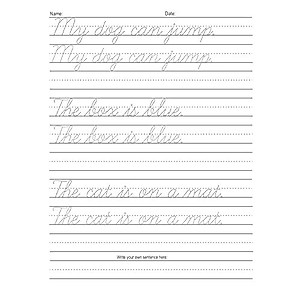 Name: Date:
My dog can jump.
My dog can jump.
The box is blue.
The box is blue.
The cat is on a mat.
The cat is on a mat.
Write your own sentence here